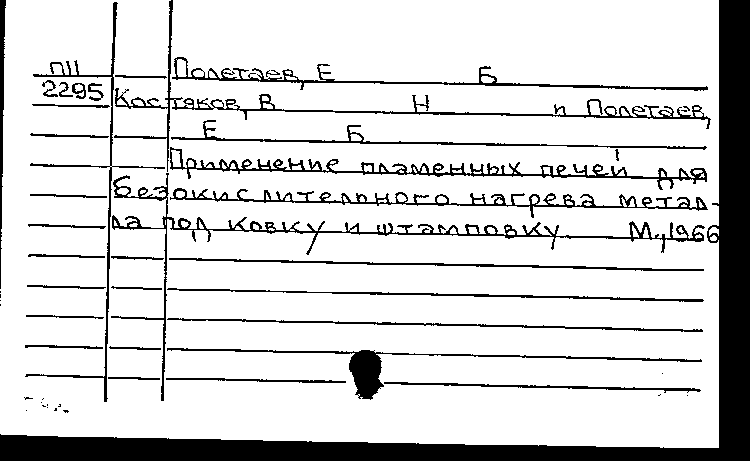 П11 Полетаев, Е Б
2295 Костяков, В Н и Полетаев,
Е Б
Применение пламенных печей для
безокислительного нагрева метал-
ла под ковку и штамповку М., 1966